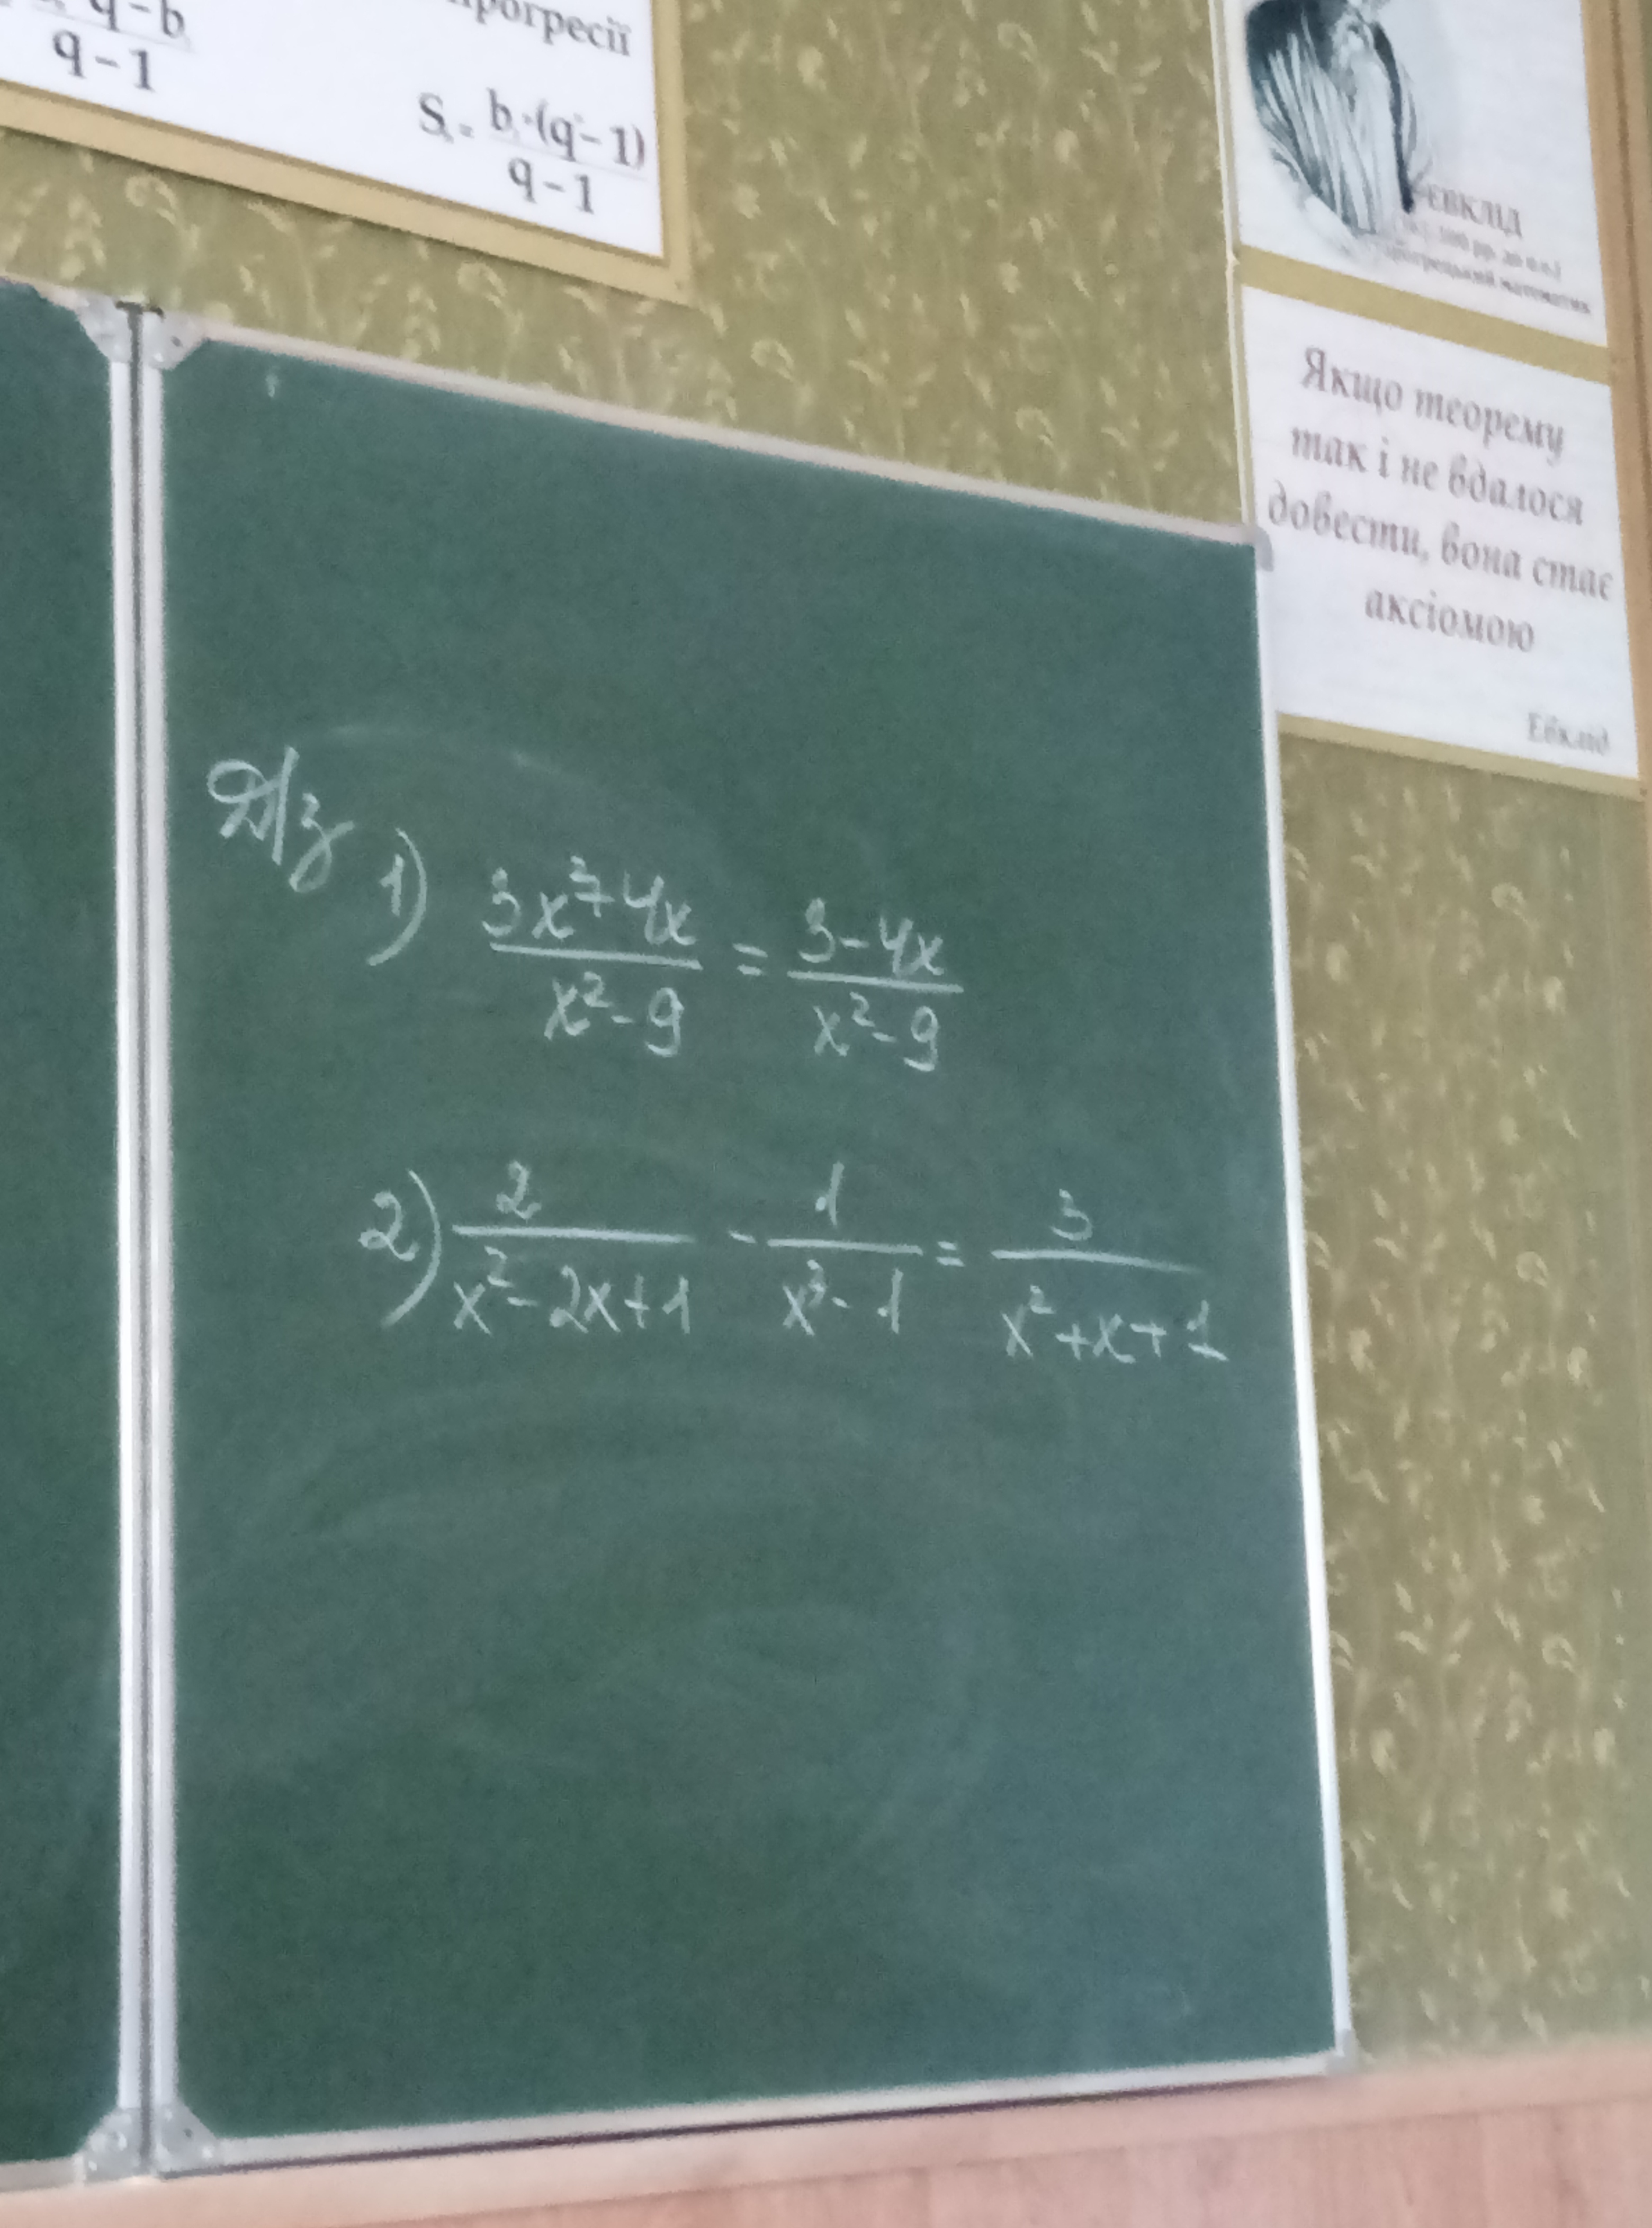 q-b
q-1
прогресії
Sₙ = b₁·(qⁿ-1)
q-1
ЕВКЛІД
Якщо теорему
так і не вдалося
довести, вона стає
аксіомою
Евклід
Д/з
1) 3x²+4x / x²-9 = 3-4x / x²-9
2) 2 / x²-2x+1 - 1 / x³-1 = 3 / x²+x+1